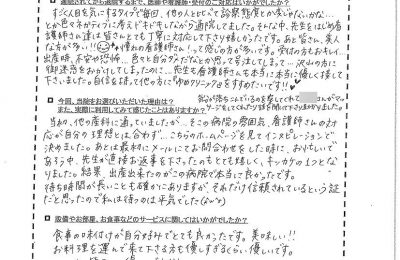 ■ 通院されてから退院するまで、医師や看護師・受付のご対応はいかがでしたか？
すごく人目を気にするタイプで毎回、他の人とちがって診察態度とか変じゃないかな…
とか色々ネガティブに考えてドキドキしながら通院してました。そんな中、先生をはじめ看
護師さん達は皆さんとても丁寧に対応して下さり嬉しかったです。あと皆さん、美人
な方が多い!! 憧れの看護師さん!って感じの方が多いです。受付の方もキレイ。
出産時、不安や恐怖…色々と自分ダメだなとか思って号泣してしまって…沢山の方に
御迷惑をおかけしてしまったのに…先生も看護師さんも本当に本当に優しく接して
下さいました。自信を持って他の方に「ゆめクリニック」をすすめたいです!!
■ 今回、当院をお選びいただいた理由は？
また、実際に利用してみて感じたことはありますか？
さんがマッ
サージをしてくれたり話を聞いて下さいました
当初、他の産科に通っていましたが…そこの病院の雰囲気、看護師さんの対
応が自分の理想とは合わず…こちらのホームページを見てインスピレーションで
決めました。あとは最初にメールにてお問合わせをした時に、お忙しいで
あろう中、先生が直接お返事を下さったのもとても嬉しく、キッカケの1つとな
りました。結果、出産出来たのがこの病院で本当に良かったです。
待ち時間が長いことも確かにありますが、それだけ信頼されているという証
だと思ったので私は待つのは平気でした
■ 設備やお部屋、お食事などのサービスに関してはいかがでしたか？
食事の味付けが自分好みでとても良かったです。美味しい!!
お料理を運んで来て下さる方も優しすぎるくらい優しいです。